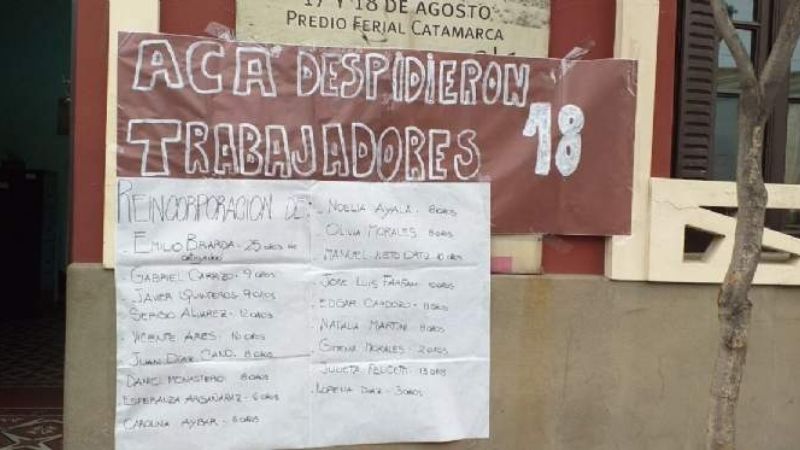 17 Y 18 DE AGOSTO
PREDIO FERIAL CATAMARCA
ACÁ DESPIDIERON
TRABAJADORES 18
REINCORPORACION DE:
- EMILIO BRARDA - 25 AÑOS DE
- GABRIEL CARRIZO - 9 AÑOS
- JAVIER QUINTEROS - 9 AÑOS
- SERGIO ALVAREZ - 12 AÑOS
- VICENTE ARES - 10 AÑOS
- JUAN DIAZ CANO. 8 AÑOS
- DANIEL MONASTERO 8 AÑOS
- ESPERANZA ARGAÑARAZ - 6 AÑOS
- CAROLINA AYBAR - 6 AÑOS
- NOELIA AYALA - 8 AÑOS
- OLIVIA MORALES - 8 AÑOS
- MANUEL NIETO 10 AÑOS
- JOSE LUIS FARFAN 10 AÑOS
- EDGAR CARDOZO - 11 AÑOS
- NATALIA MARTINI 8 AÑOS
- GIMENA MORALES - 2 AÑOS
- JULIETA 13 AÑOS
- LORENA DIAZ - 3 AÑOS